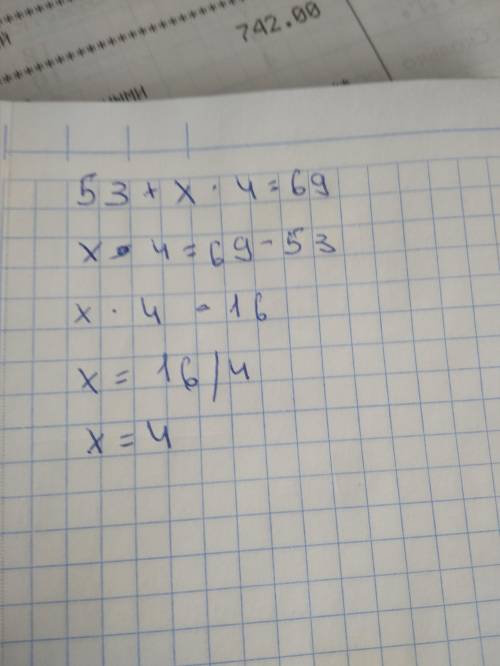 742.00
53 + x · 4 = 69
x · 4 = 69 - 53
x · 4 = 16
x = 16/4
x = 4